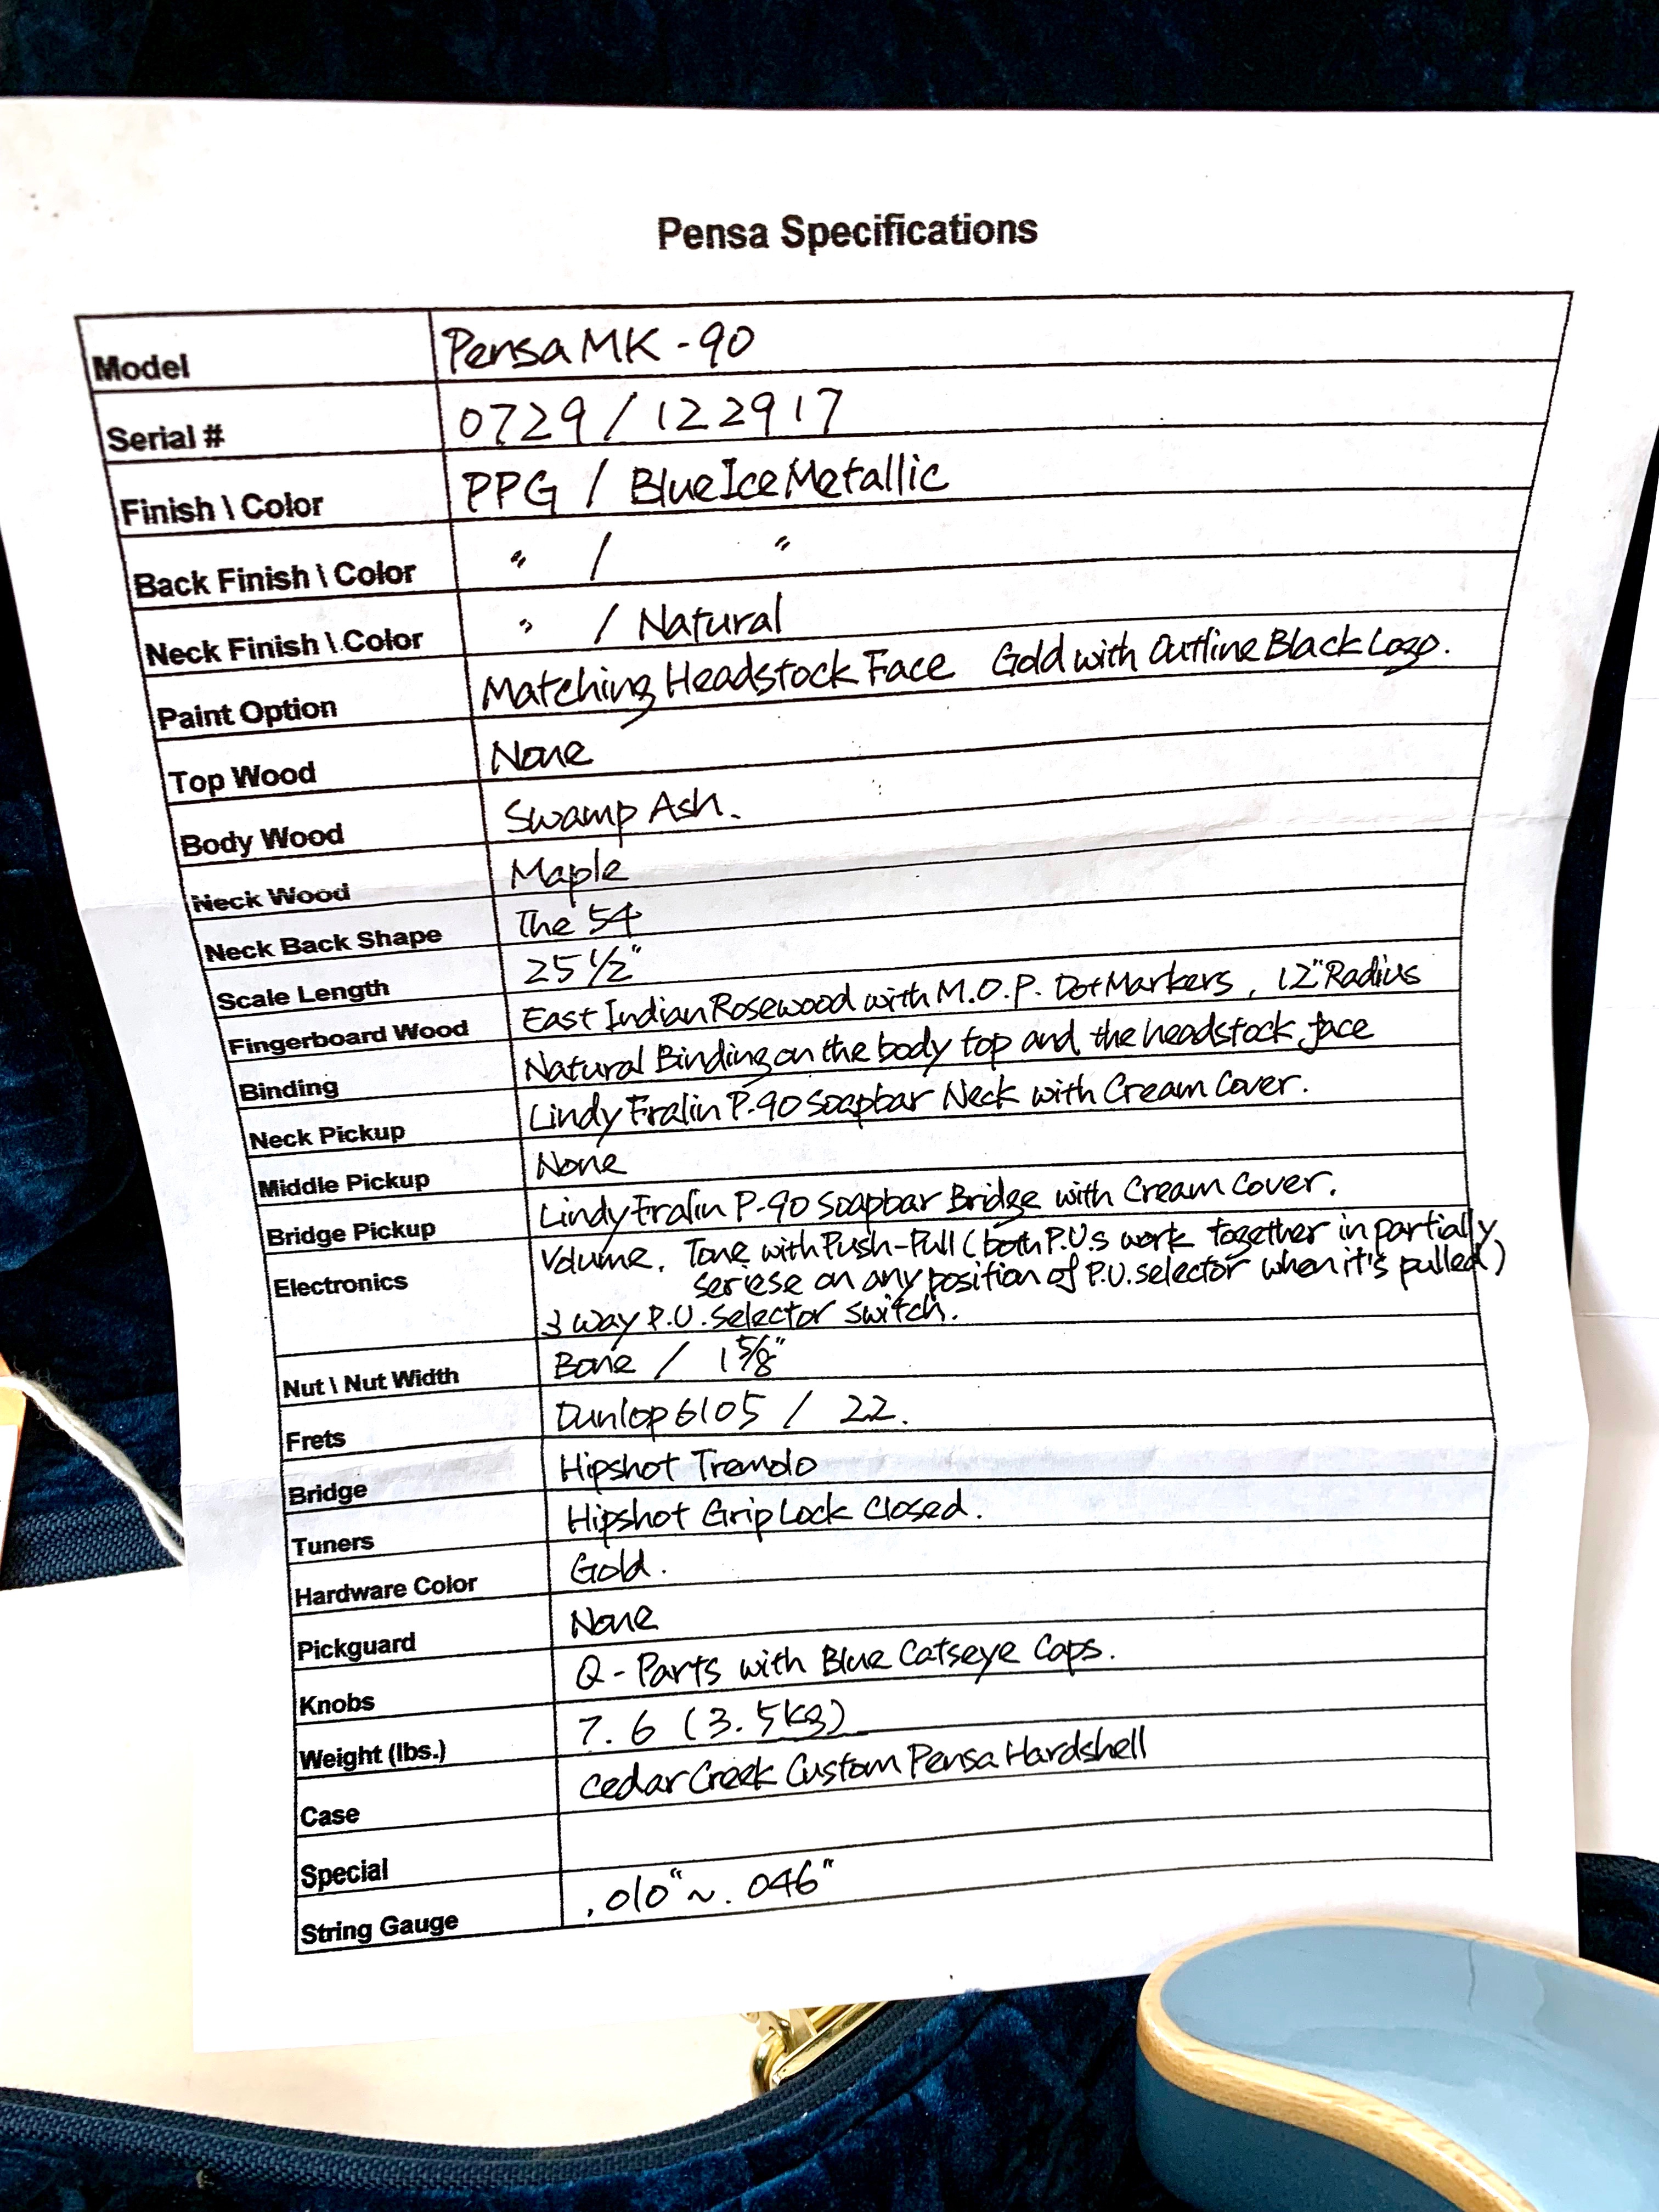 Pensa Specifications
Model Pensa MK-90
Serial # 0729 / 122917
Finish \ Color PPG / Blue Ice Metallic
Back Finish \ Color " / "
Neck Finish \ Color " / Natural
Paint Option Matching Headstock Face Gold with Outline Black Logo.
Top Wood None
Body Wood Swamp Ash.
Neck Wood Maple
Neck Back Shape The 54
Scale Length 25 1/2"
Fingerboard Wood East Indian Rosewood with M.O.P. Dot Markers, 12" Radius
Binding Natural Binding on the body top and the headstock face
Neck Pickup Lindy Fralin P-90 Soapbar Neck with Cream Cover.
Middle Pickup None
Bridge Pickup Lindy Fralin P-90 Soapbar Bridge with Cream Cover.
Electronics Volume, Tone with Push-Pull (both P.U.s work together in partially
seriese on any position of P.U. selector when it's pulled)
3 way P.U. selector switch.
Nut \ Nut Width Bone / 1 5/8"
Frets Dunlop 6105 / 22.
Bridge Hipshot Tremolo
Tuners Hipshot Grip Lock Closed.
Hardware Color Gold.
Pickguard None
Knobs Q-Parts with Blue Catseye Caps.
Weight (lbs.) 7.6 (3.5kg)
Case Cedar Creek Custom Pensa Hardshell
Special
String Gauge .010" ~ .046"